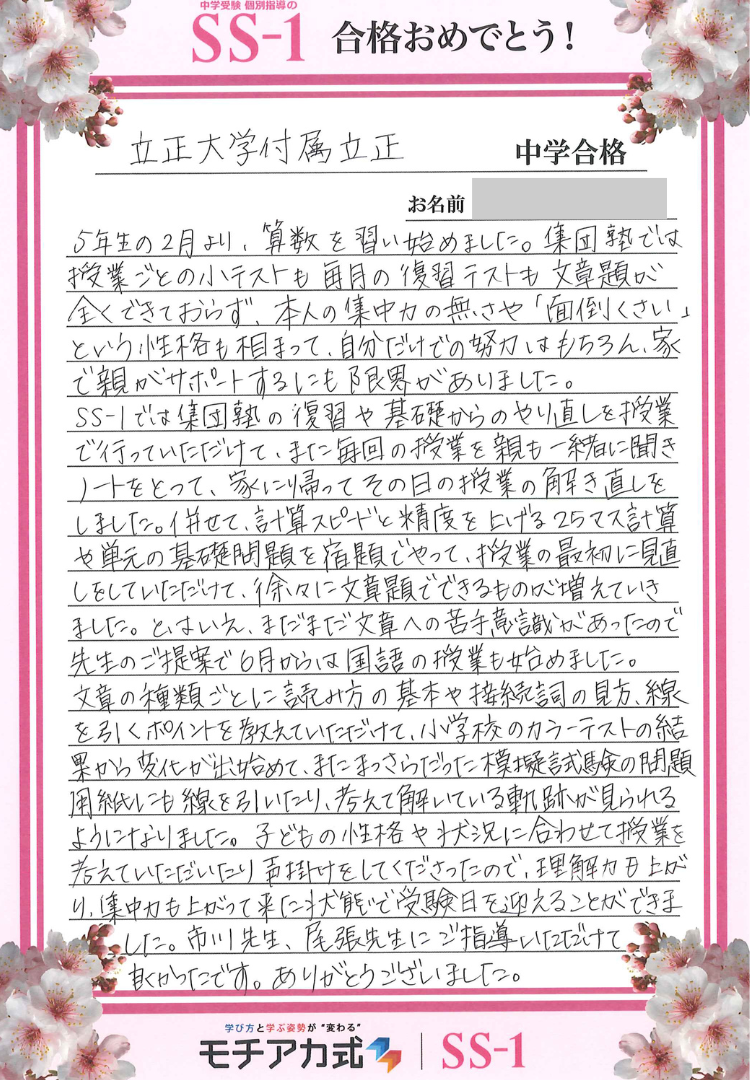 中学受験 個別指導の
SS-1 合格おめでとう!
立正大学付属立正 中学合格
お名前
5年生の2月より、算数を習い始めました。集団塾では
授業ごとの小テストも毎月の復習テストも文章題が
全くできておらず、本人の集中力の無さや「面倒くさい」
という性格も相まって、自分だけでの努力はもちろん、家
で親がサポートするにも限界がありました。
SS-1では集団塾の復習や基礎からのやり直しを授業
で行っていただけて、また毎回の授業を親も一緒に聞き
ノートをとって、家に帰ってその日の授業の解き直しを
しました。併せて、計算スピードと精度を上げる25マス計算
や単元の基礎問題を宿題でやって、授業の最初に見直
しをしていただけて、徐々に文章題でできるものが増えていき
ました。とはいえ、まだまだ文章への苦手意識があったので
先生のご提案で6月からは国語の授業も始めました。
文章の種類ごとに読み方の基本や接続詞の見方、線
を引くポイントを教えていただけて、小学校のカラーテストの結
果から変化が出始めて、またまっさらだった模擬試験の問題
用紙にも線を引いたり、考えて解いている軌跡が見られる
ようになりました。子どもの性格や状況に合わせて授業を
考えていただいたり声掛けをしてくださったので、理解力も上が
り、集中力も上がって来た状態で受験日を迎えることができま
した。市川先生、尾張先生にご指導いただけて
良かったです。ありがとうございました。
学び方と学ぶ姿勢が "変わる"
モチアカ式 SS-1